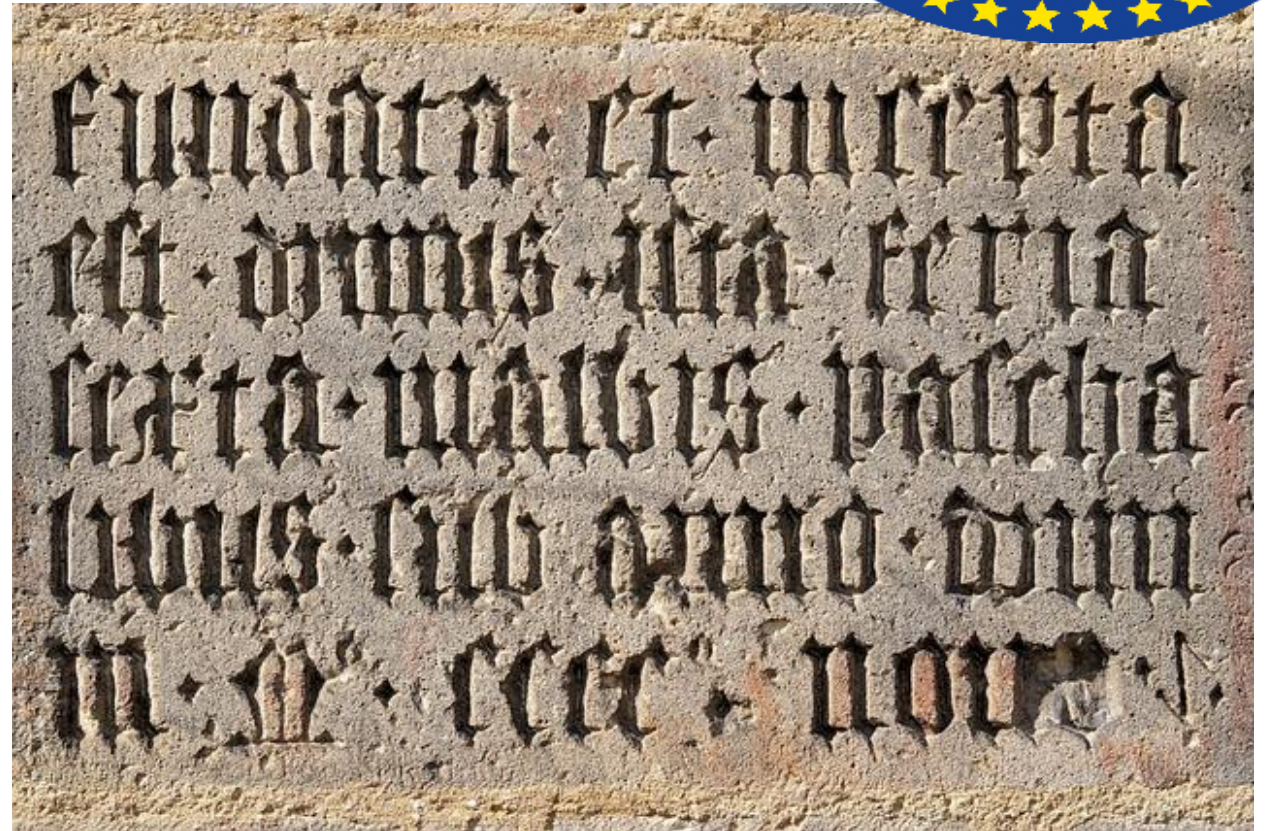 fundata · et · incepta
est · domus · ista · feria
sexta · inalbis · pascha
libus · sub anno · domi
ni · M° · cccc ·